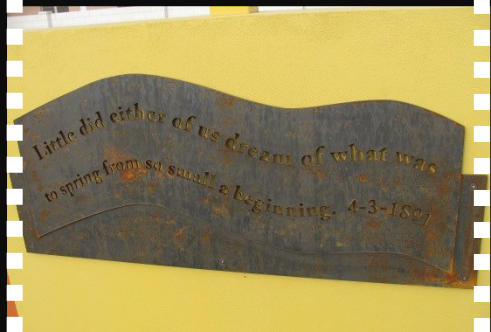 Little did either of us dream of what was
to spring from so small a beginning. 4-3-1891